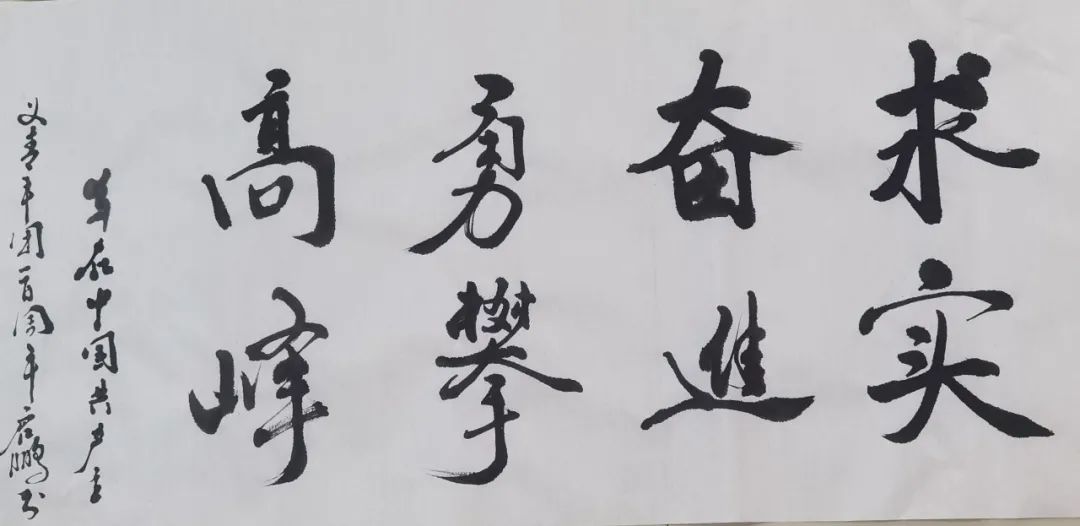 求实
奋進
勇攀
高峰
写在中国共产主
义青年团一百周年应鹏书